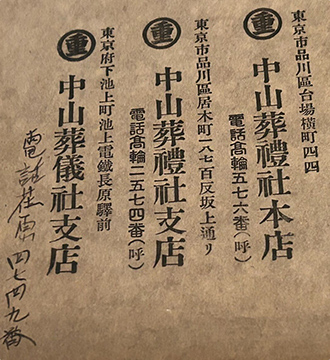 東京市品川區台場橫町四四
重 中山葬禮社本店
電話髙輪五七六番(呼)
東京市品川區居木町一八七百反坂上通リ
重 中山葬禮社支店
電話髙輪二五七四番(呼)
東京府下池上町池上電鐵長原驛前
重 中山葬儀社支店
電話荏原四七四九番